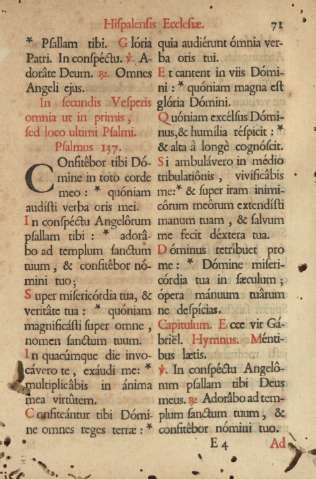 Hispalensis Ecclesiæ. 71
* Psallam tibi. Glória
Patri. In conspéctu. ℣. A-
doráte Deum. ℟. Omnes
Angeli ejus.
In secundis Vesperis
omnia ut in primis,
sed loco ultimi Psalmi.
Psalmus 137.
COnfitébor tibi Dó-
mine in toto corde
meo: * quóniam
audísti verba oris mei.
In conspéctu Angelórum
psallam tibi: * adorá-
bo ad templum sanctum
tuum, & confitébor nó-
mini tuo;
Super misericórdia tua, &
veritáte tua: * quóniam
magnificásti super omne,
nomen sanctum tuum.
In quacúmque die invo-
cávero te, exáudi me: *
multiplicábis in ánima
mea virtútem.
Confiteántur tibi Dómi-
ne omnes reges terræ: *
quia audiérunt ómnia ver-
ba oris tui.
Et cantent in viis Dómi-
ni: * quóniam magna est
glória Dómini.
Quóniam excélsus Dómi-
nus, & humília réspicit: *
& alta à longè cognóscit.
Si ambulávero in médio
tribulatiónis, vivificábis
me: * & super iram inimi-
córum meórum extendísti
manum tuam, & salvum
me fecit déxtera tua.
Dóminus retríbuet pro
me: * Dómine miseri-
córdia tua in sæculum;
ópera mánuum tuárum
ne despícias.
Capitulum. Ecce vir Gá-
briël. Hymnus. Ménti-
bus lætis.
℣. In conspéctu Angeló-
rum psallam tibi Deus
meus. ℟. Adorábo ad tem-
plum sanctum tuum, &
confitébor nómini tuo.
E 4 Ad